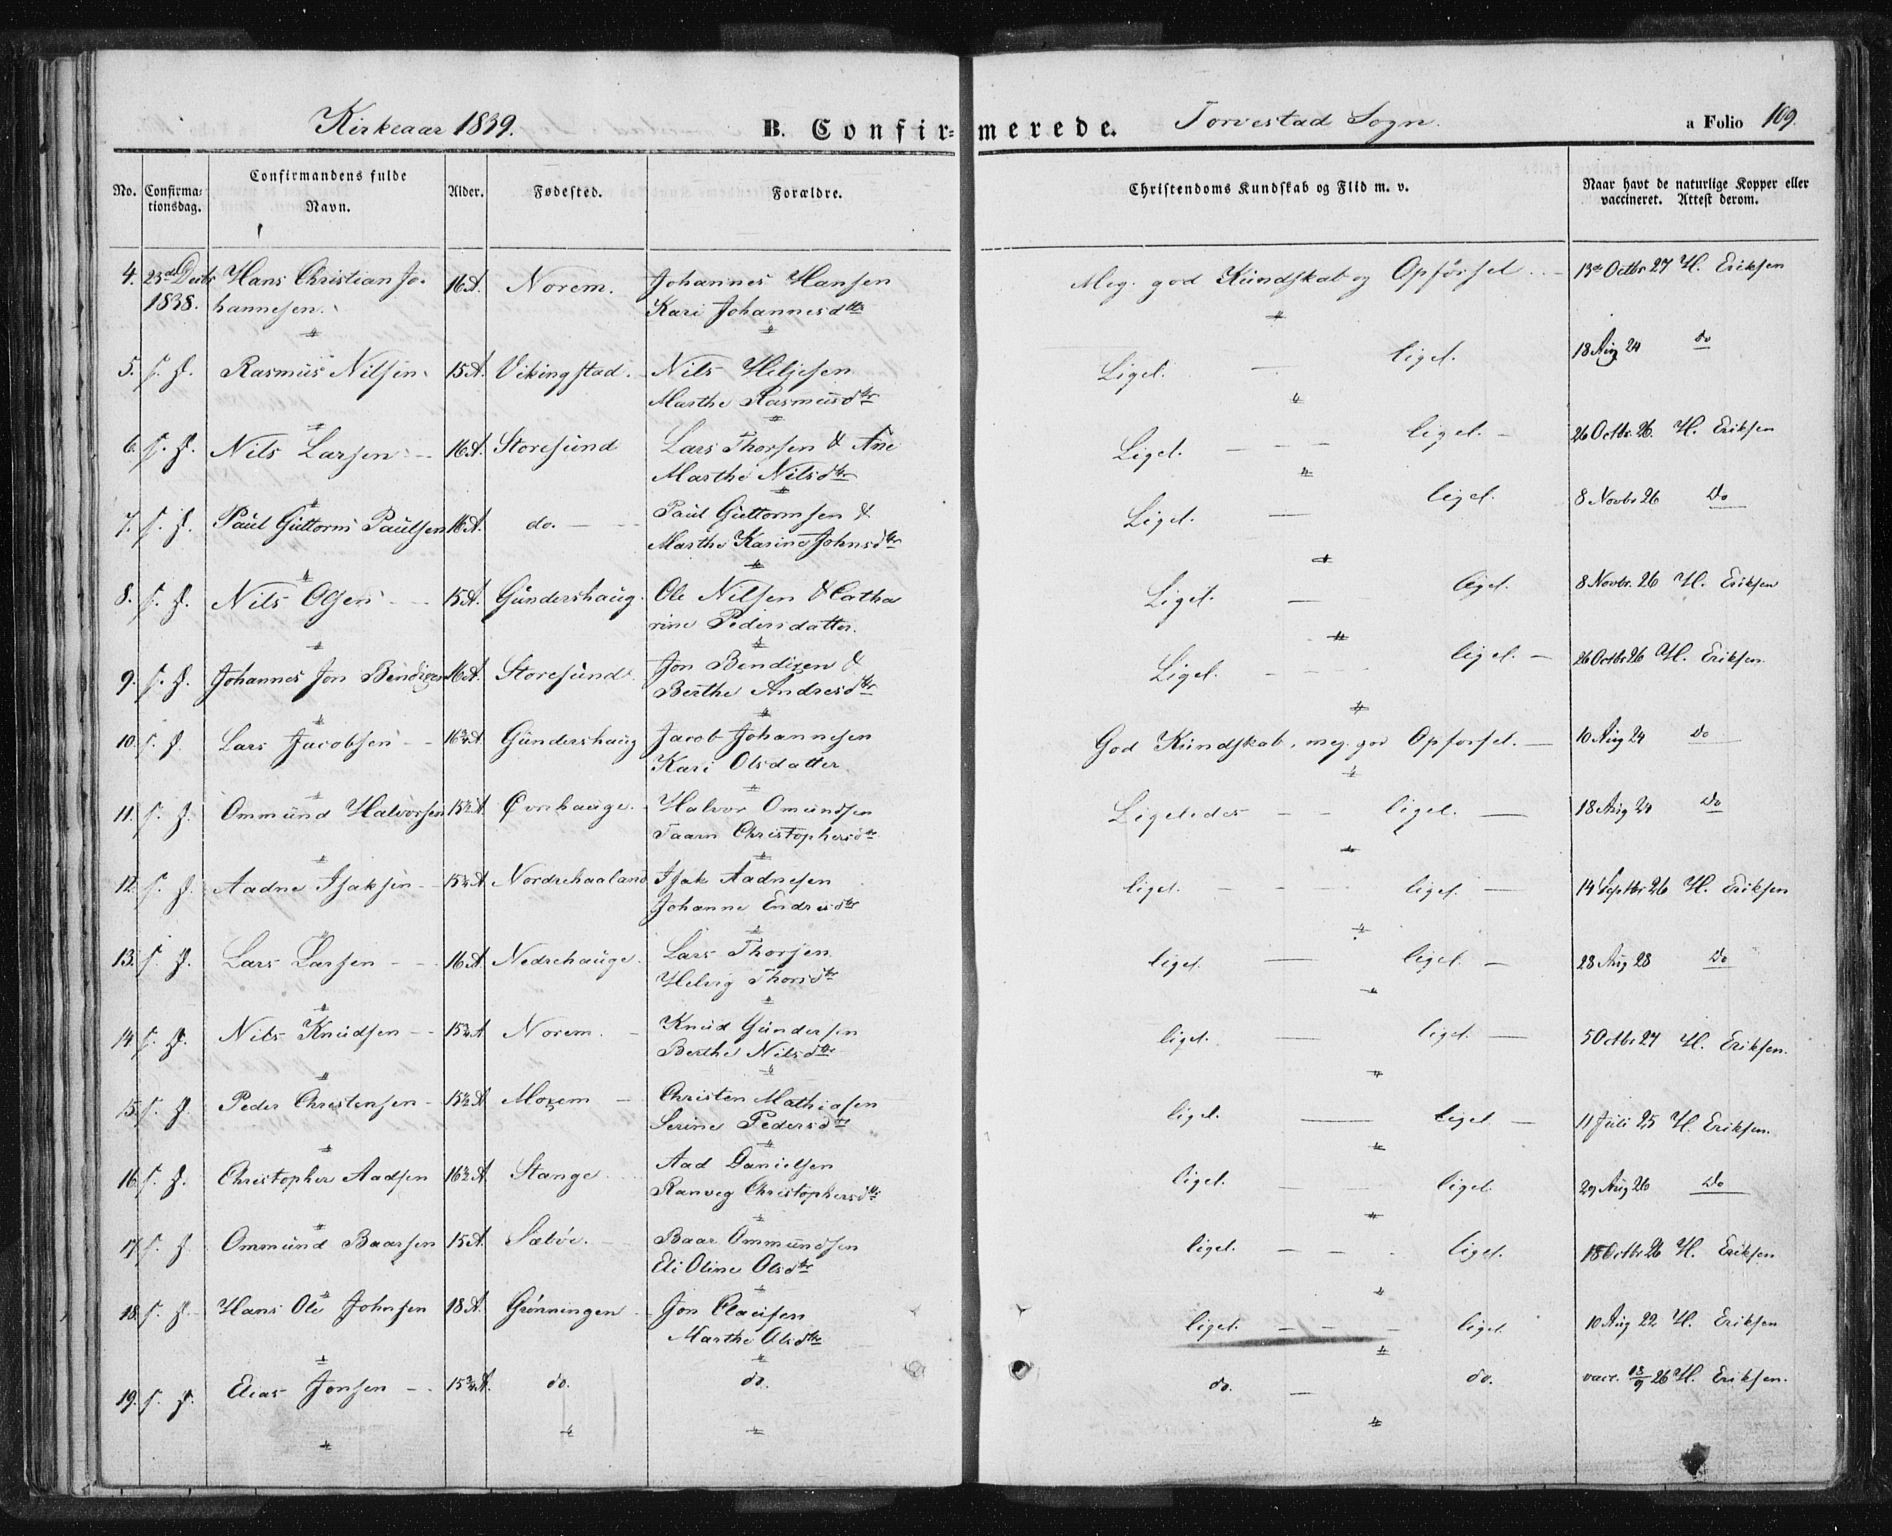 Kirkeaar 1839. B. Confir= merede. Torvestad Sogn. a Folio 169.
No. Confirma-tionsdag. Confirmandens fulde Navn. Alder. Fødested. Forældre. Christendoms Kundskab og Flid m. v. Naar havt de naturlige Kopper eller vaccineret. Attest derom.
4. 23de Decbr Hans Christian Jo- 16 A. Norem. Johannes Hansen Meg. god Kundskab og Opførsel. 13de Octbr 27 H. Eriksen
1838. hannesen. Kari Johannesdtr
5. s. d. Rasmus Nilsen 15 A. Vikingstad. Nils Liget. liget. 18 Aug 24 do
Marthe Rasmusdtr
6. s. d. Nils Larsen 16 A. Storesund Lars Thorsen & Ane Liget. liget. 26 Octbr. 26. H. Eriksen
Marthe Nilsdtr
7. s. d. Paul Guttorm Paulsen 16 A. do. Paul Guttormsen & Liget. liget. 8 Novbr 26 Do
Marthe Karine Johnsdtr
8. s. d. Nils Olsen 15 A. Gundershaug. Ole Nilsen & Catha Liget. liget. 8 Novbr. 26 H. Eriksen
rine Pedersdatter.
9. s. d. Johannes Jon Bendixen 16 A. Storesund Jon Bendixen & Liget. liget. 26 Octbr 26 H. Eriksen
Berthe Andresdtr
10. s. d. Lars Jacobsen 16½ A. Gundershaug Jacob Johannesen God Kundskab, meg. god Opførsel. 10 Aug 24 Do
Kari Olsdatter.
11. s. d. Ommund Halvorsen 15½ A. Øvrehauge. Halvor Omundsen Ligeledes liget. 18 Aug 24 Do
Taarn Christophersdtr
12. s. d. Aadne Isaksen 15¾ A. Nordrehaaland Isak Aadnesen liget. liget. 14 Septbr 26 H. Eriksen
Johanne Endresdtr
13. s. d. Lars Larsen 16 A. Nedrehauge. Lars Thorsen liget. liget. 28 Aug 28 Do
Helvig Thorsdtr
14. s. d. Nils Knudsen 15¾ A Norem. Knud Gundersen liget. liget. 5 Octbr 27 H. Eriksen.
Berthe Nilsdtr
15. s. d. Peder Christensen 15½ A Christen Mathiasen liget. liget 11 Juli 25 H. Eriksen.
Serine Pedersdtr
16. s. d. Christopher Aadsen 16½ A. Stange Aad Danielsen liget. liget. 29 Aug 26 Do
Ranveg Christophersdtr
17. s. d. Ommund Baarsen 15 A. Sæbøe. Baar Ommundsen liget. liget. 18 Octbr 26 H. Eriksen
Eli Oline Olsdtr
18. s. d. Hans Ole Johnsen 18 A. Grønningen Jon Claussen liget. liget. 10 Aug 22 H. Eriksen
Marthe Olsdtr
19. s. d. Elias Jonsen 15¾ A. do. do. do. do. vacc. 13/9 26 H. Eriksen.